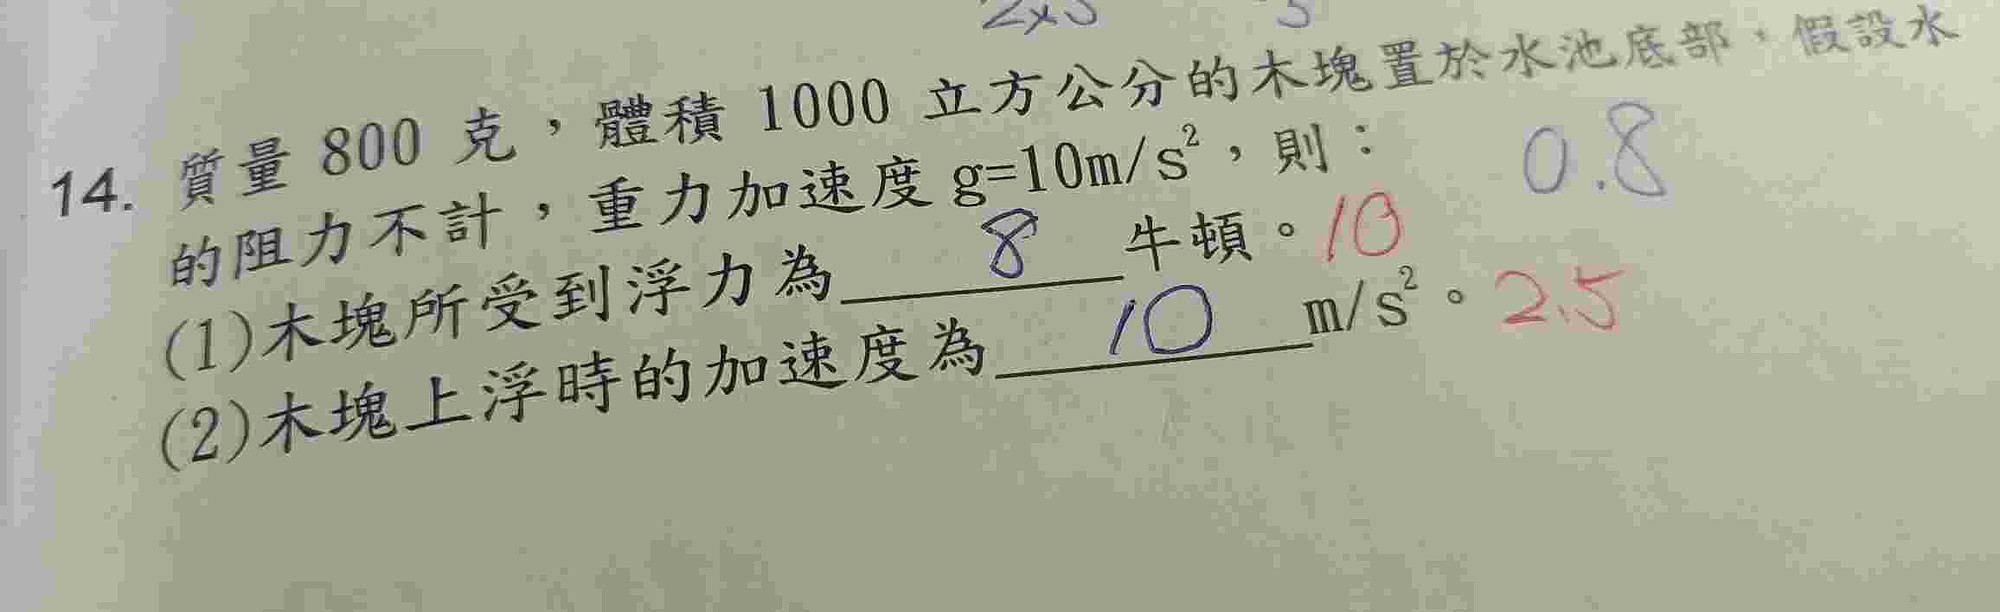 14. 質量 800 克，體積 1000 立方公分的木塊置於水池底部，假設水
的阻力不計，重力加速度 g=10m/s²，則： 0.8
(1)木塊所受到浮力為 8 牛頓。10
(2)木塊上浮時的加速度為 10 m/s²。2.5